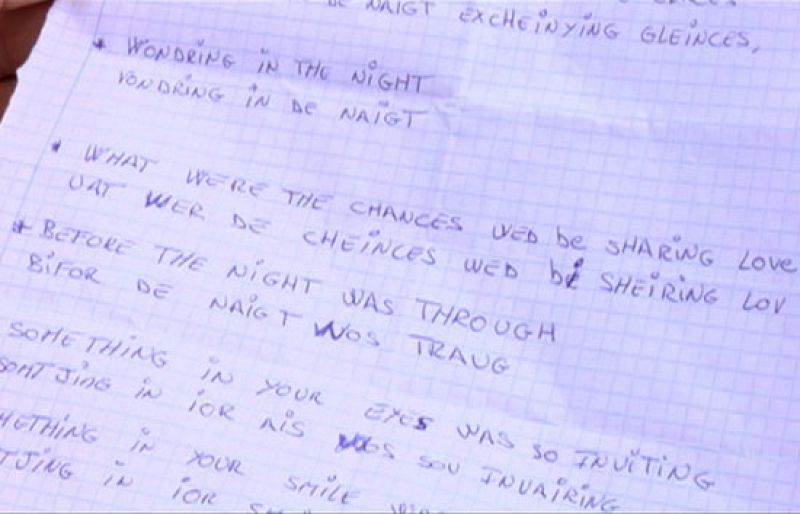 DE NAIGT EXCHEINYING GLEINCES,
* WONDRING IN THE NIGHT
VONDRING IN DE NAIGT
* WHAT WERE THE CHANCES WED be SHARING LOVE
UAT WER DE CHEINCES WED bi SHEIRING LOV
* BEFORE THE NIGHT WAS THROUGH
BIFOR DE NAIGT WOS TRAUG
SOMETHING IN YOUR EYES WAS SO INVITING
SOMTJING IN IOR AIS WOS SOU INVAIRING
METHING IN YOUR SMILE
TJING IN IOR